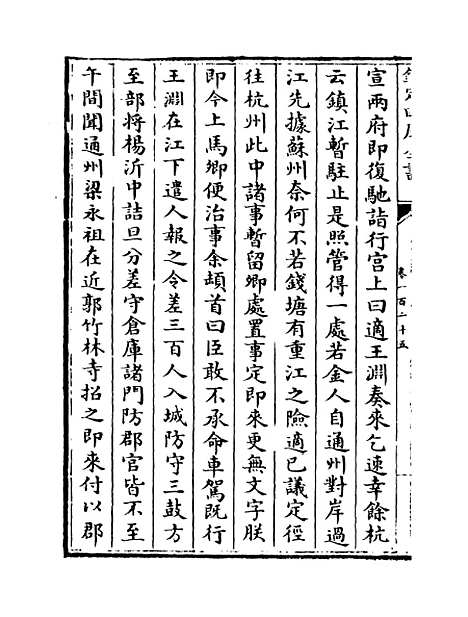 欽定四庫全書
卷一百二十五
宣兩府即復馳詣行宫上曰適王淵奏來乞速幸餘杭
云鎮江暫駐止是照管得一處若金人自通州對岸過
江先據蘇州奈何不若錢塘有重江之險適已議定徑
往杭州此中諸事暫留卿處置事定即來更無文字朕
即今上馬卿便治事余頓首曰臣敢不承命車駕既行
王淵在江下遣人報之令差三百人入城防守三鼓方
至部將楊沂中詰旦分差守倉庫諸門防郡官皆不至
午間聞通州梁永祖在近郭竹林寺招之即來付以郡